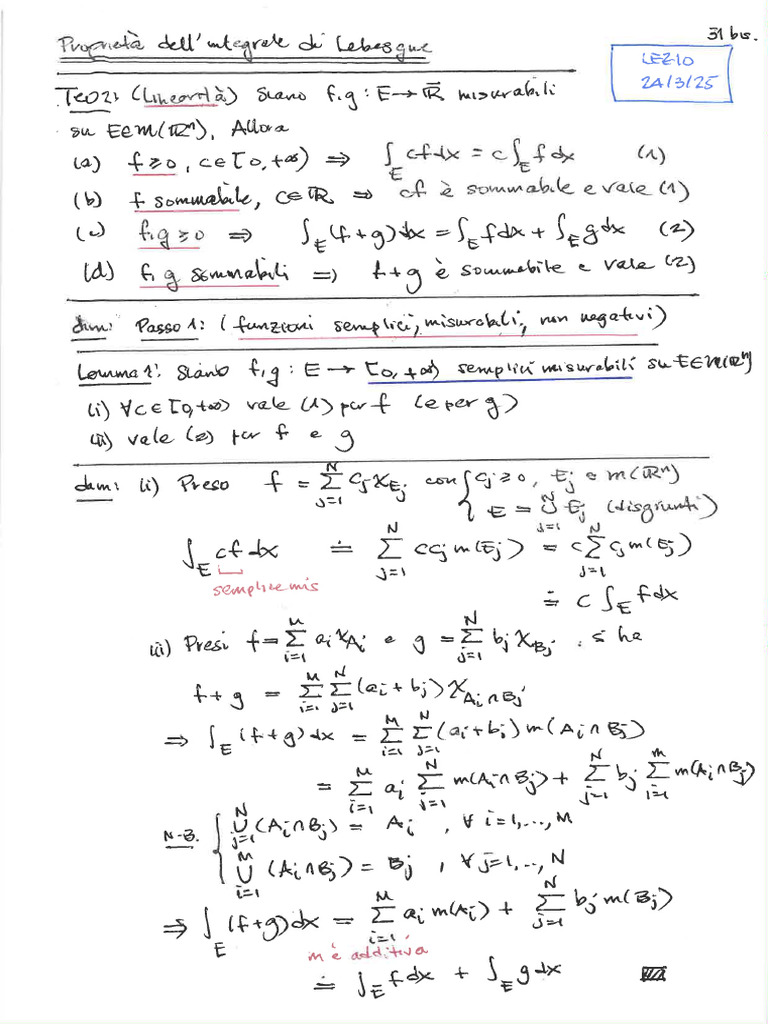 31 bis.
Proprietà dell'integrale di Lebesgue
LEZIO
24/3/25
TEO2: (Linearità) Siano f,g : E → ℝ̄ misurabili
su E∈m(ℝⁿ), Allora
(a) f ≥ 0, c∈[0,+∞) ⇒ ∫_E cf dx = c∫_E f dx (1)
(b) f sommabile, c∈ℝ ⇒ cf è sommabile e vale (1)
(c) f,g ≥ 0 ⇒ ∫_E (f+g)dx = ∫_E f dx + ∫_E g dx (2)
(d) f, g sommabili ⇒ f+g è sommabile e vale (2)
dim: Passo 1: (funzioni semplici, misurabili, non negativi)
Lemma 1: Siano f,g : E → [0,+∞) semplici misurabili su E∈m(ℝⁿ)
(i) ∀c∈[0,+∞) vale (1) per f (e per g)
(ii) vale (2) per f e g
dim: (i) Preso f = Σ_{j=1}^N c_j χ_{E_j} con { c_j ≥ 0, E_j ∈ m(ℝⁿ)
E = ∪_{j=1}^N E_j (disgiunti)
∫_E cf dx ≐ Σ_{j=1}^N c c_j m(E_j) = c Σ_{j=1}^N c_j m(E_j)
semplice mis
≐ c ∫_E f dx
ii) Presi f = Σ_{i=1}^M a_i χ_{A_i} e g = Σ_{j=1}^N b_j χ_{B_j}, si ha
f+g = Σ_{i=1}^M Σ_{j=1}^N (a_i + b_j) χ_{A_i∩B_j}
⇒ ∫_E (f+g)dx = Σ_{i=1}^M Σ_{j=1}^N (a_i+b_j) m(A_i∩B_j)
= Σ_{i=1}^M a_i Σ_{j=1}^N m(A_i∩B_j) + Σ_{j=1}^N b_j Σ_{i=1}^m m(A_i∩B_j)
N.B. { ∪_{j=1}^N (A_i∩B_j) = A_i, ∀ i=1,...,M
∪_{i=1}^M (A_i∩B_j) = B_j, ∀ j=1,..,N
⇒ ∫_E (f+g)dx = Σ_{i=1}^M a_i m(A_i) + Σ_{j=1}^N b_j m(B_j)
m è additiva
≐ ∫_E f dx + ∫_E g dx